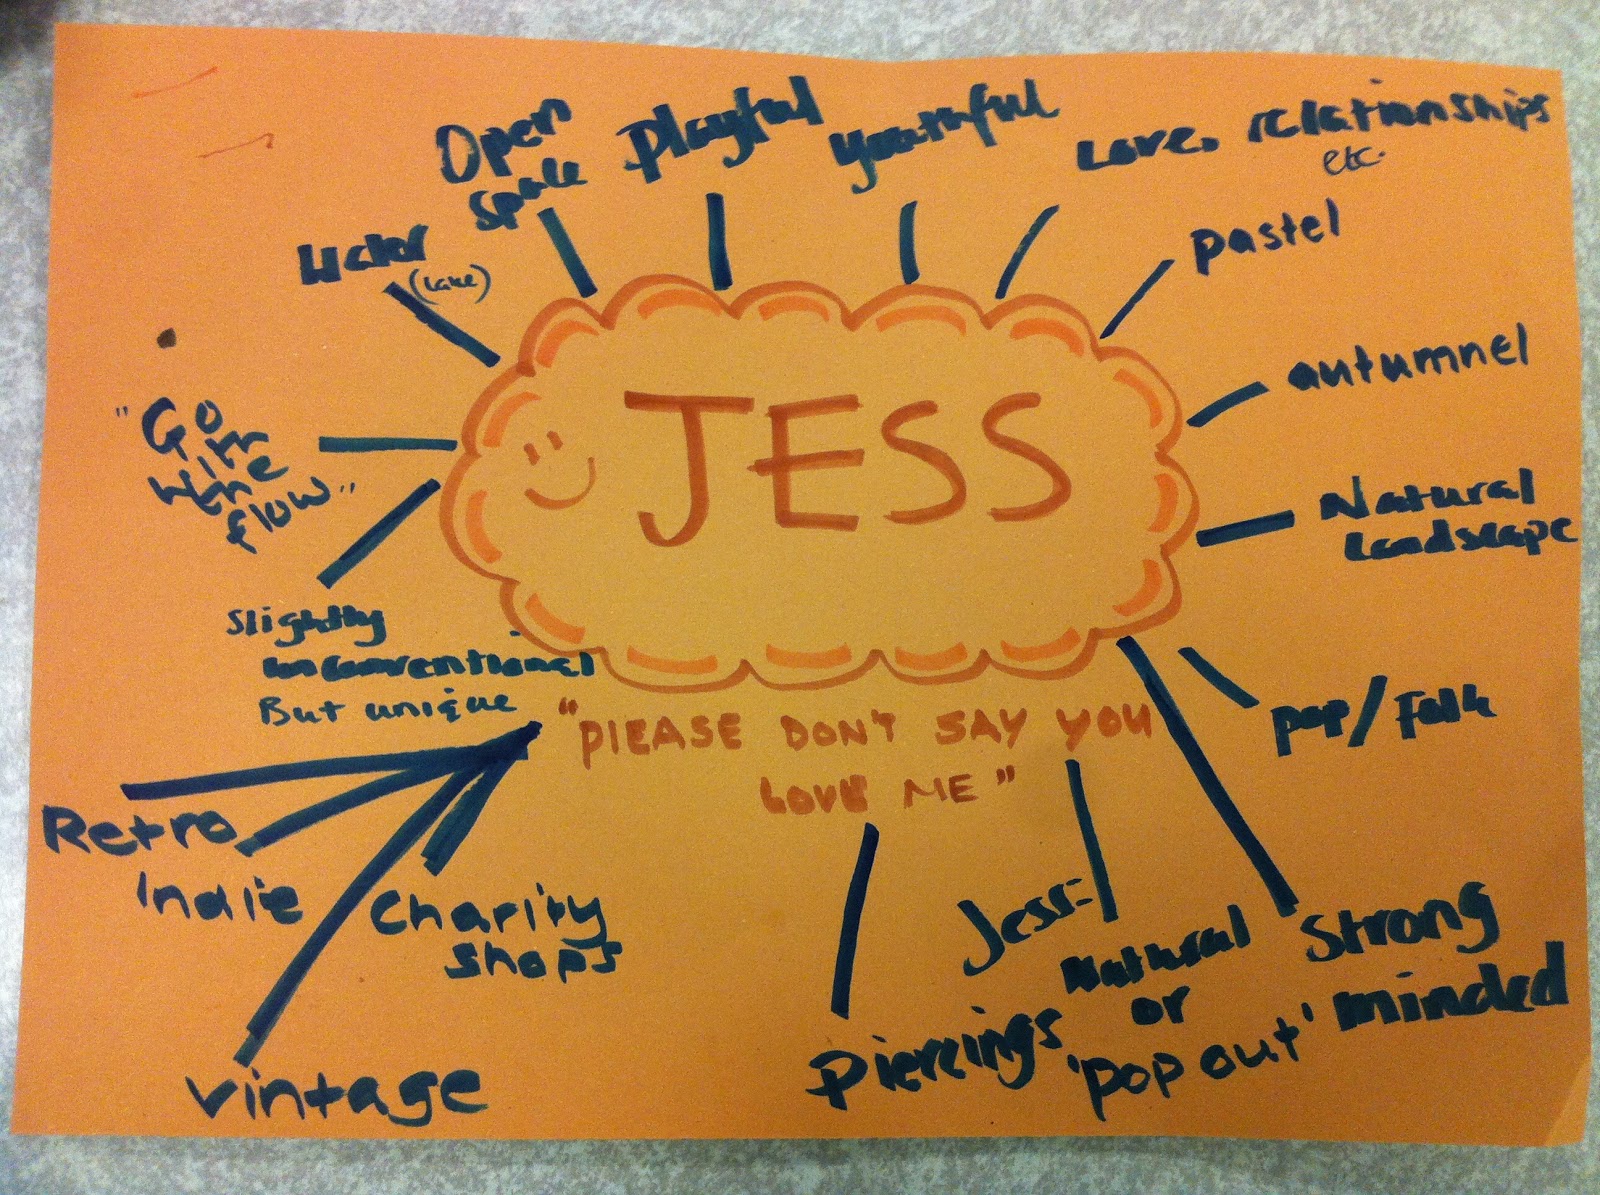 JESS
"PLEASE DON'T SAY YOU
LOVE ME"
Open
space
Playful
youthful
Love, relationships
etc.
pastel
autumnel
Natural
Landscape
pop/Folk
Strong
minded
Jess:
Natural
or
'pop out'
Piercings
Charity
shops
Vintage
Indie
Retro
Slightly
unconventional
But unique
"Go
with
the
flow"
Water
(Lake)